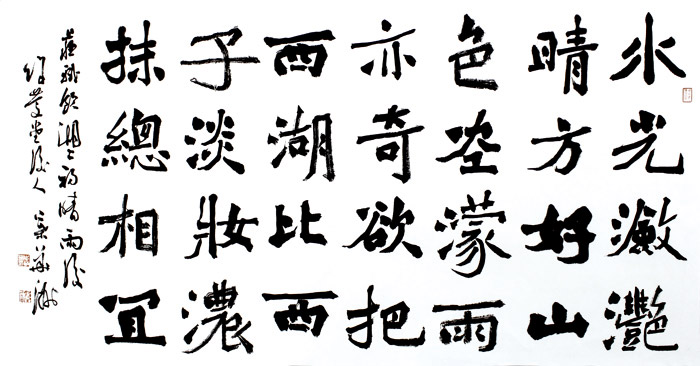 水光瀲灩
晴方好山
色空濛雨
亦奇欲把
西湖比西
子淡妝濃
抹總相宜
蘇軾飲湖上初晴雨後